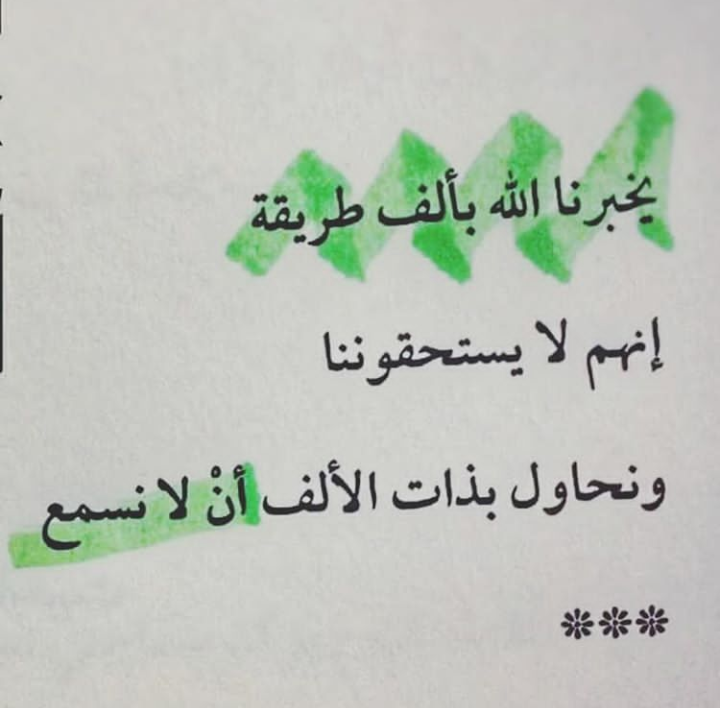 يخبرنا الله بألف طريقة
إنهم لا يستحقوننا
ونحاول بذات الألف أنْ لا نسمع
***